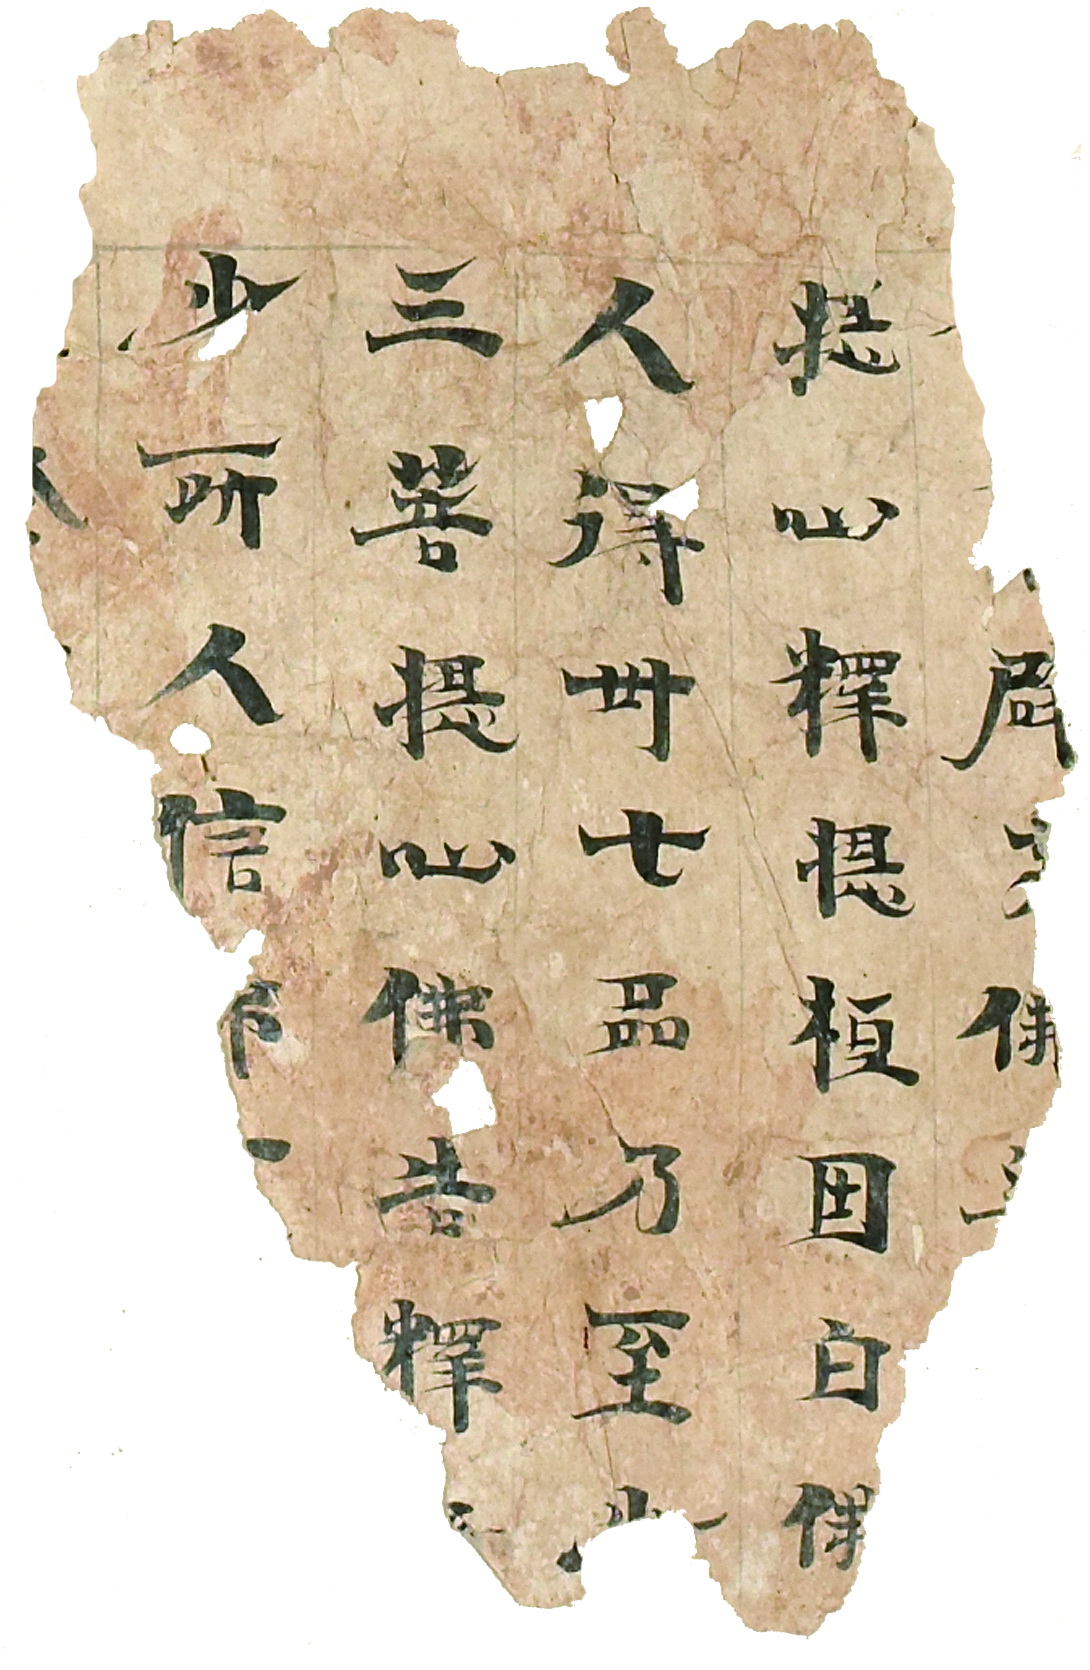 辟支佛
提心釋提桓因白佛
人得卅七品乃至少
三菩提心佛告釋
少所人信